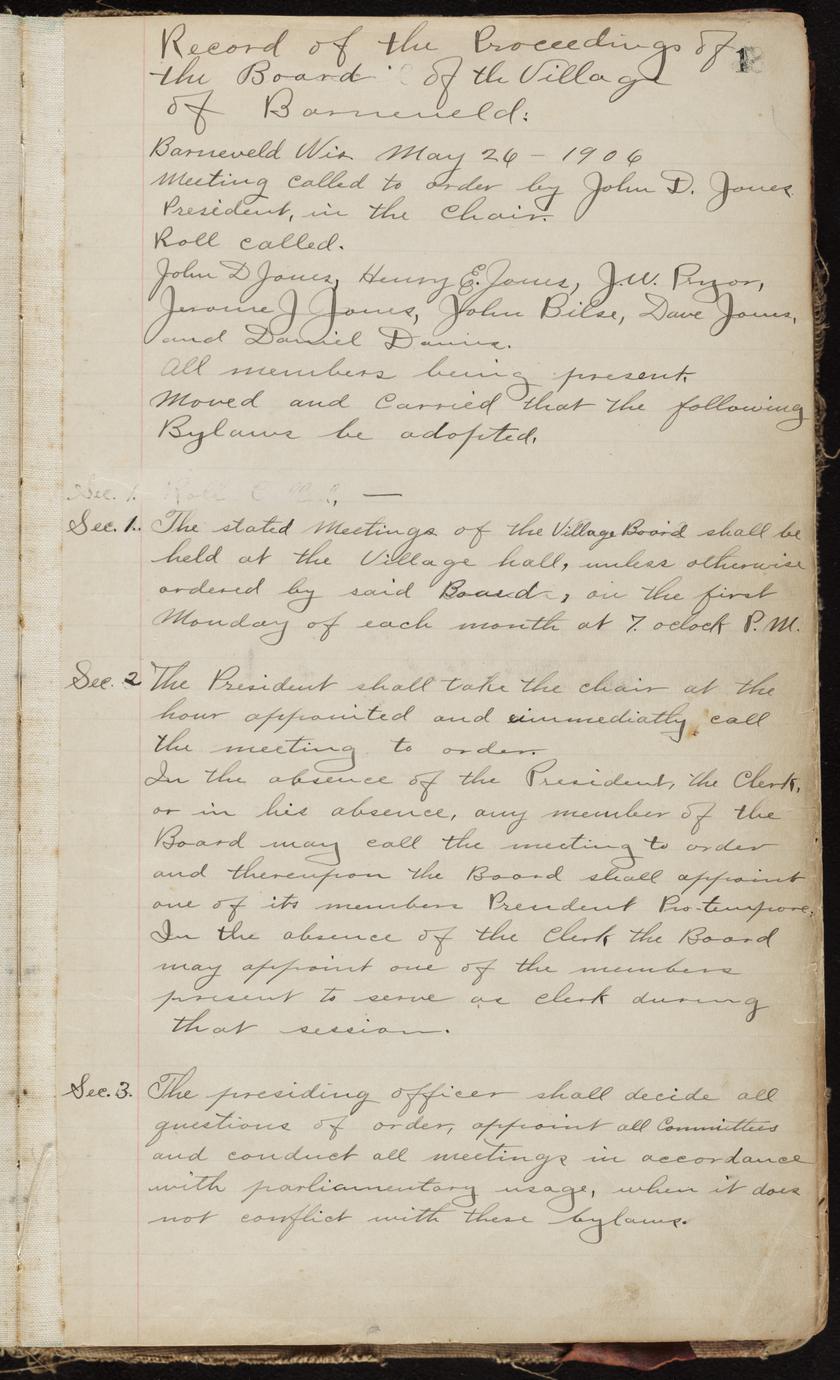 Record of the Proceedings of
1
the Board of the Village
of Barneveld:
Barneveld Wis. May 26 - 1906
Meeting called to order by John D. Jones
President, in the Chair.
Roll called.
John D Jones, Henry E. Jones, J.W. Pryor,
Jerome J Jones, John Bilse, Dave Jones,
and Daniel Davis.
All members being present.
Moved and Carried that the following
Bylaws be adopted.
Sec. 1. Roll —
Sec. 1. The stated Meetings of the Village Board shall be
held at the Village hall, unless otherwise
ordered by said Board, on the first
Monday of each month at 7. oclock P.M.
Sec. 2 The President shall take the chair at the
hour appointed and immediatly call
the meeting to order.
In the absence of the President, the Clerk,
or in his absence, any member of the
Board may call the meeting to order
and thereupon the Board shall appoint
one of its members President Pro-tempore.
In the absence of the Clerk the Board
may appoint one of the members
present to serve as clerk during
that session.
Sec. 3. The presiding officer shall decide all
questions of order, appoint all Committees
and conduct all meetings in accordance
with parliamentary usage, when it does
not conflict with these bylaws.